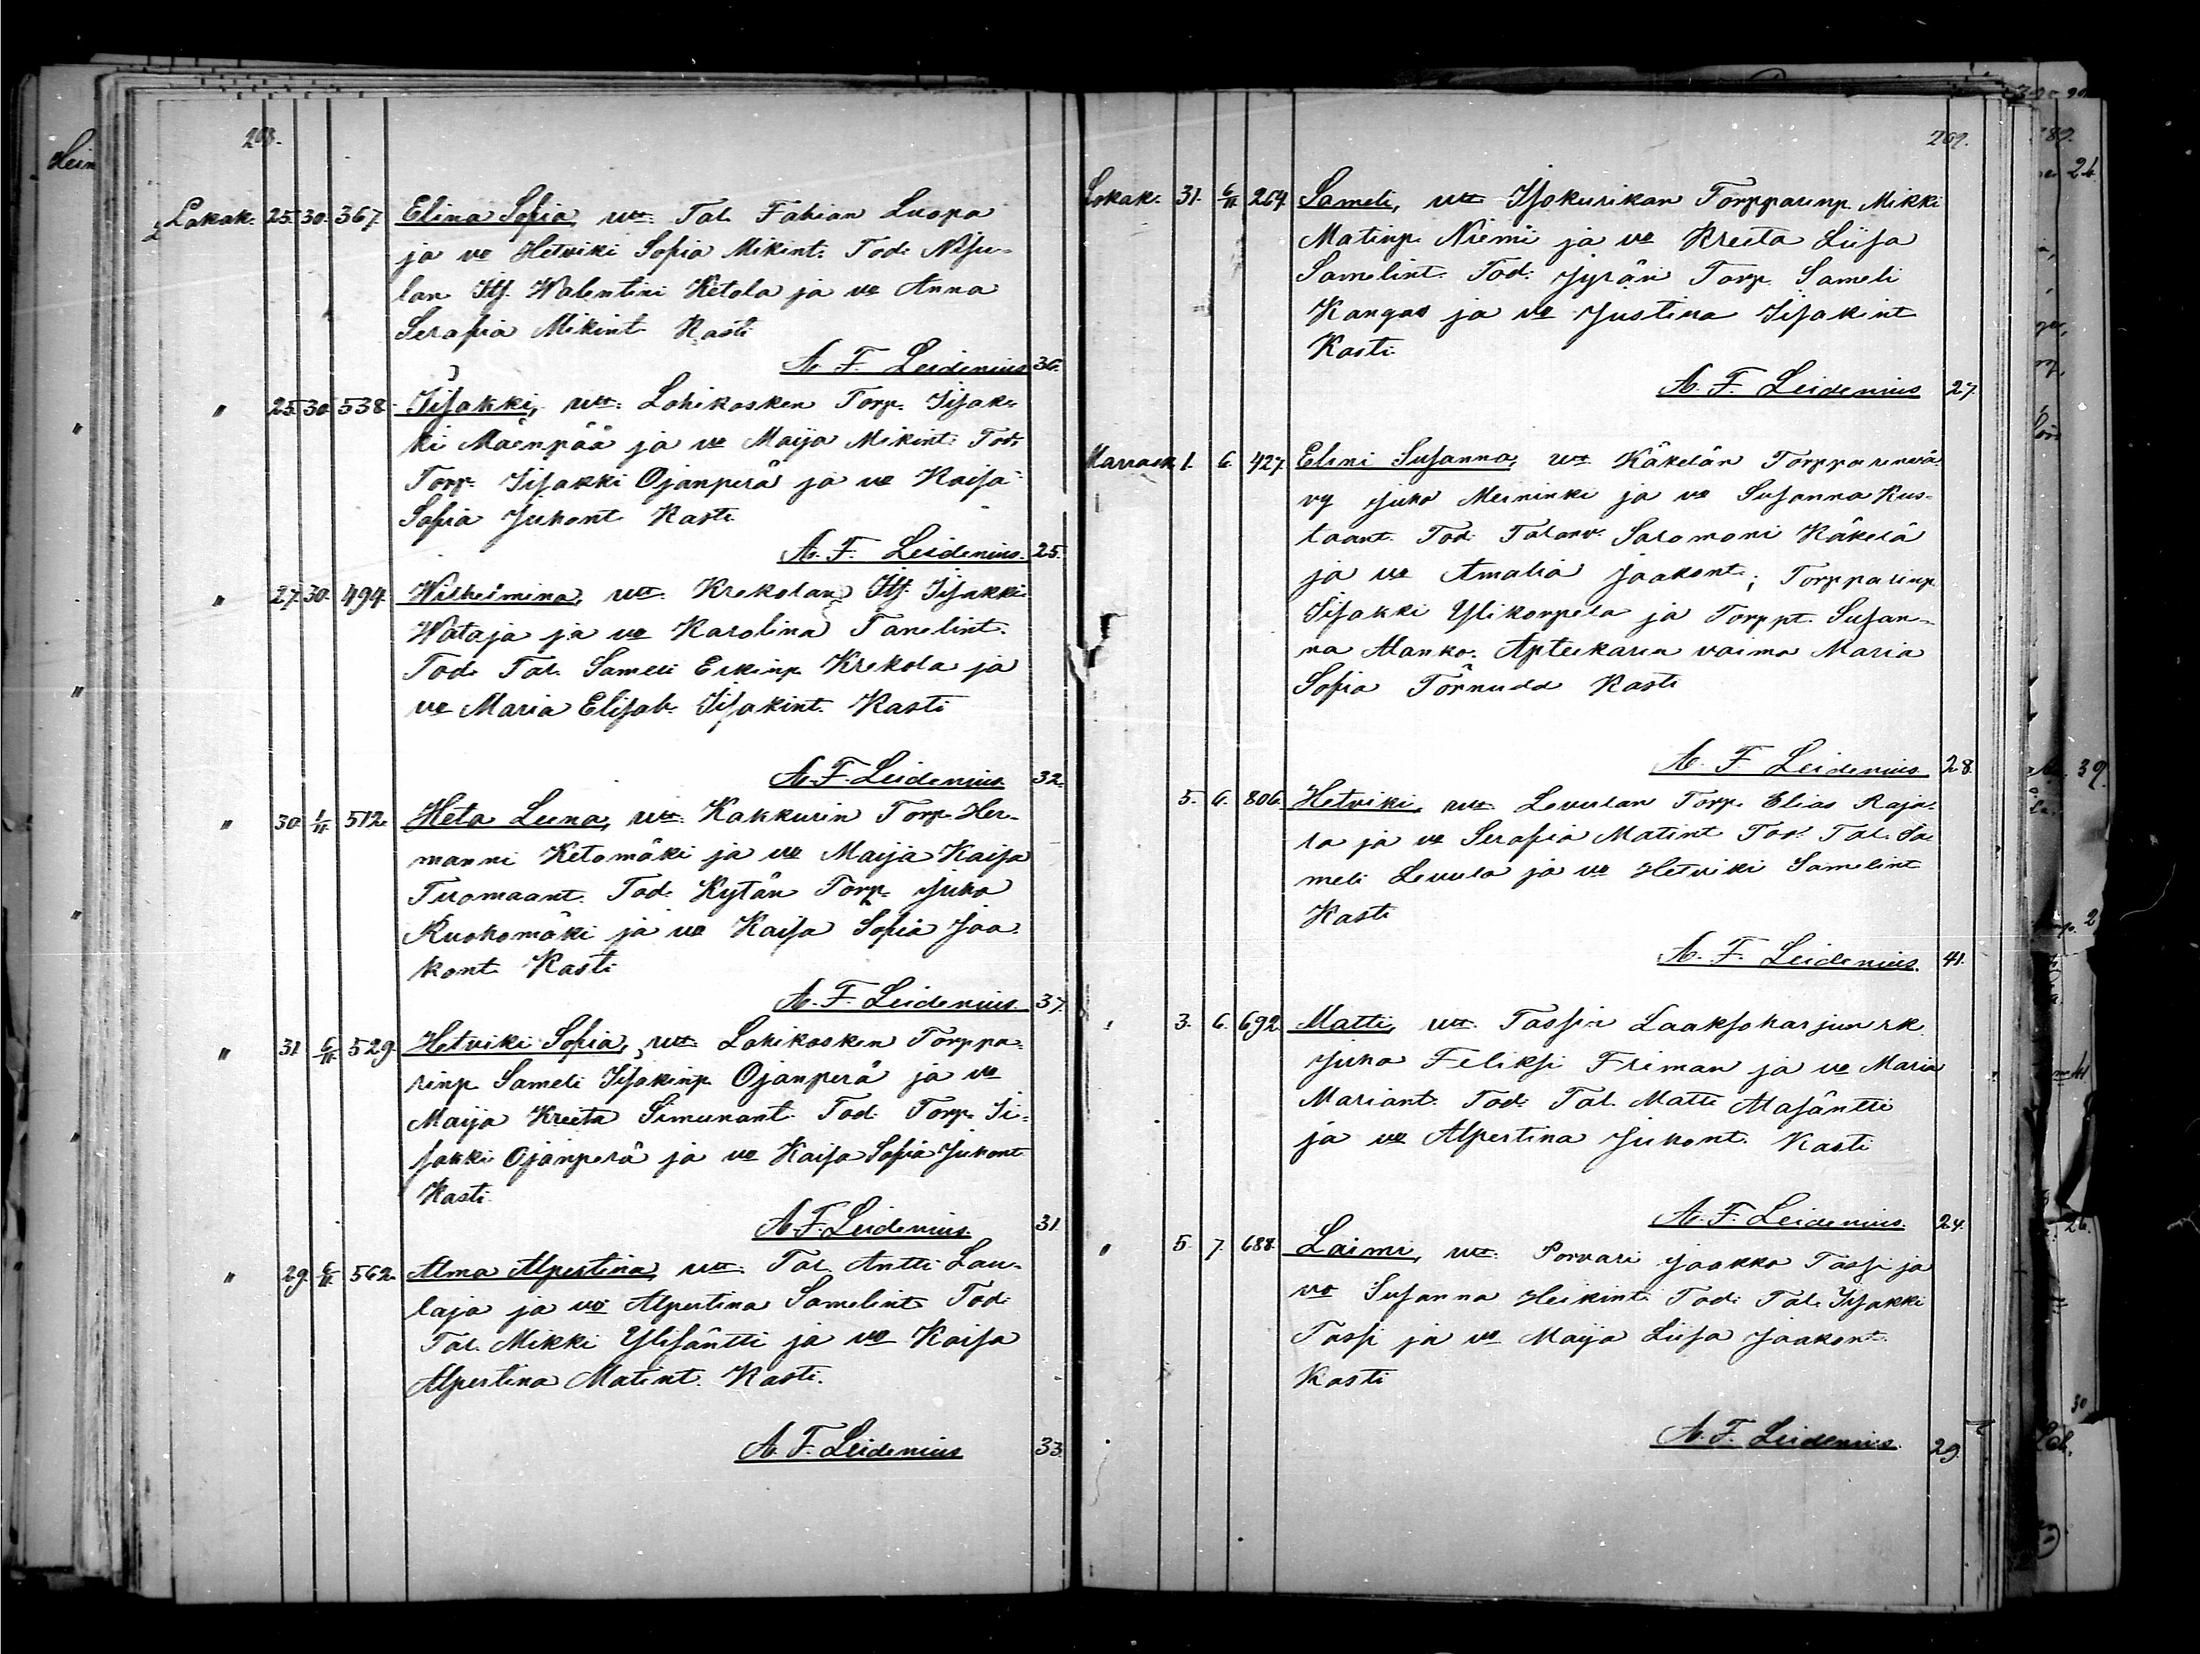 208.
Lokak. 25. 30. 367. Elina Sofia, vtt. Tal. Fabian Luopa
ja vo Hetviki Sofia Mikint. Tod.
lan Itf. Walentini Ketola ja vo Anna
Serafia Mikint. Kasti
A. F. Leidenius 36.
" 25. 30. 538. Iisakki, vtt. Lohikosken Torp. Iisak-
ki Mäenpää ja vo Maija Mikint. Tod.
Torp. Iisakki Ojanperä ja vo Kaisa
Sofia Juhont. Kasti
A. F. Leidenius. 25.
" 27. 30. 494. Wilhelmina, vtt. Krekolan Itf. Iisakki
Wataja ja vo Karolina Tanelint.
Tod. Tal. Sameli Erkinp. Krekola ja
vo Maria Elisab. Iisakint. Kasti
A. F. Leidenius 32.
" 30. 1/11 512. Heta Leena, vtt. Kakkurin Torp. Her-
manni Ketomäki ja vo Maija Kaisa
Tuomaant. Tod. Kytän Torp. Juho
Ruohomäki ja vo Kaisa Sofia Jaa-
kont. Kasti
A. F. Leidenius. 37.
" 31. 6/11 529. Hetviki Sofia, vtt. Lohikosken Torppa-
rinp. Sameli Iisakinp. Ojanperä ja vo
Maija Kreeta Simunant. Tod. Torp. Ii-
sakki Ojanperä ja vo Kaisa Sofia Juhont
Kasti
A. F. Leidenius. 31.
" 29. 6/11 562. Alma Alpertina, vtt. Tal. Antti Lau-
laja ja vo Alpertina Samelint. Tod.
Tal. Mikki Ylisäntti ja vo Kaisa
Alpertina Matint. Kasti.
A. F. Leidenius 33.
209.
Lokak. 31. 6/11 264. Sameli, vtt. Isokurikan Torpparinp. Mikki
Matinp. Niemi ja vo Kreeta Liisa
Samelint. Tod. Jyrän Torp. Sameli
Kangas ja vo Justina Iisakint
Kasti
A. F. Leidenius 27.
Marrask. 1. 6. 427. Elini Susanna, vtt. Käkelän Torpparinvä-
vy Juho Meininki ja vo Susanna Kus-
taant. Tod. Talonv. Salomoni Käkelä
ja vo Amalia Jaakont.; Torpparinp.
Iisakki Ylikorpela ja Torppt. Susan-
na Manko. Apteekarin vaimo Maria
Sofia Törnudd Kasti
A. F. Leidenius. 28.
5. 6. 806. Hetviki, vtt. Levulan Torp. Elias Raja-
la ja vo Serafia Matint Tod. Tal. Sa-
meli Levula ja vo Hetviki Samelint
Kasti
A. F. Leidenius. 41.
" 3. 6. 692. Matti, vtt. Tassin Laaksoharjun rk.
Juho Feliksi Friman ja vo Maria
Mariant. Tod. Tal. Matti Alasäntti
ja vo Alpertina Juhont. Kasti
A. F. Leidenius. 24.
" 5. 7. 688. Laimi, vtt. Porvari Jaakko Tassi ja
vo Susanna Heikint. Tod. Tal. Iisakki
Tassi ja vo Maija Liisa Jaakont.
Kasti
A. F. Leidenius. 29.